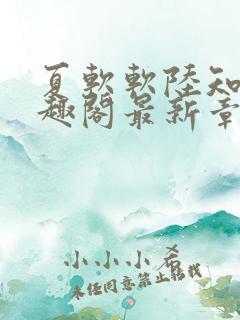 夏軟軟陸知
趣閣最新章
小小小希
未任同意禁止转载